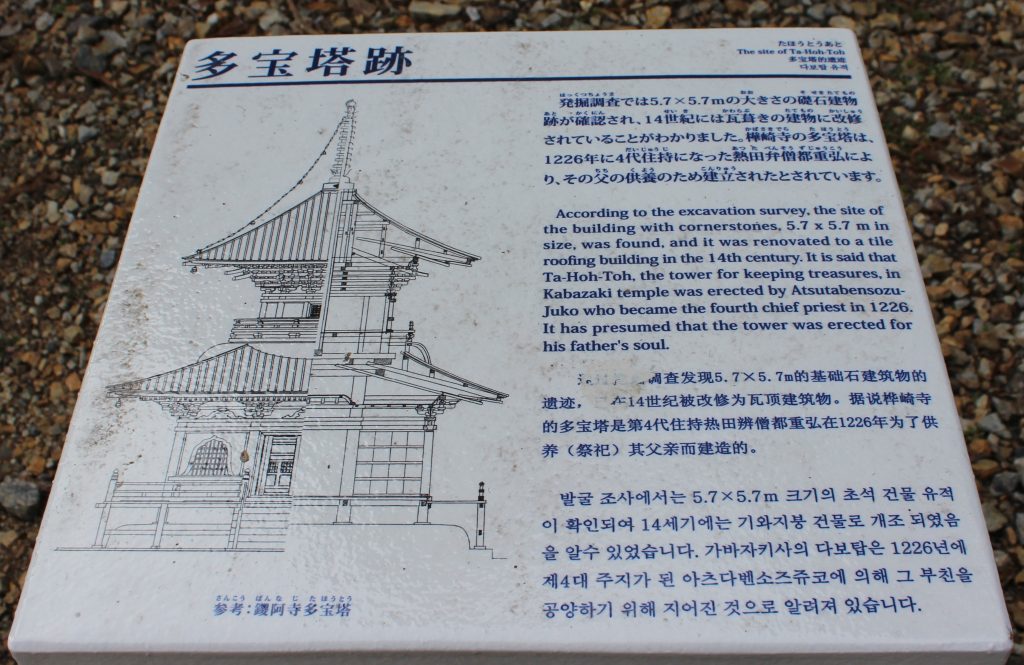 多宝塔跡
たほうとうあと
The site of Ta-Hoh-Toh
多宝塔的遗迹
다보탑 유적
はっくつちょうさ おお そせきたてもの
発掘調査では5.7×5.7mの大きさの礎石建物
あと かくにん せいき かわらぶ たてもの かいしゅう
跡が確認され、14世紀には瓦葺きの建物に改修
かばさきでら たほうとう
されていることがわかりました。樺崎寺の多宝塔は、
だいじゅうじ あつたべんそうずじゅうこう
1226年に4代住持になった熱田弁僧都重弘によ
ちち くよう こんりゅう
り、その父の供養のため建立されたとされています。
According to the excavation survey, the site of
the building with cornerstones, 5.7 x 5.7 m in
size, was found, and it was renovated to a tile
roofing building in the 14th century. It is said that
Ta-Hoh-Toh, the tower for keeping treasures, in
Kabazaki temple was erected by Atsutabensozu-
Juko who became the fourth chief priest in 1226.
It has presumed that the tower was erected for
his father's soul.
调查发现5.7×5.7m的基础石建筑物的
遗迹，在14世纪被改修为瓦顶建筑物。据说桦崎寺
的多宝塔是第4代住持热田辨僧都重弘在1226年为了供
养（祭祀）其父亲而建造的。
발굴 조사에서는 5.7×5.7m 크기의 초석 건물 유적
이 확인되여 14세기에는 기와지붕 건물로 개조 되였음
을 알수 있었습니다. 가바자키사의 다보탑은 1226년에
제4대 주지가 된 아츠다벤소즈쥬코에 의해 그 부친을
공양하기 위해 지어진 것으로 알려져 있습니다.
さんこう ばんなじたほうとう
参考：鑁阿寺多宝塔